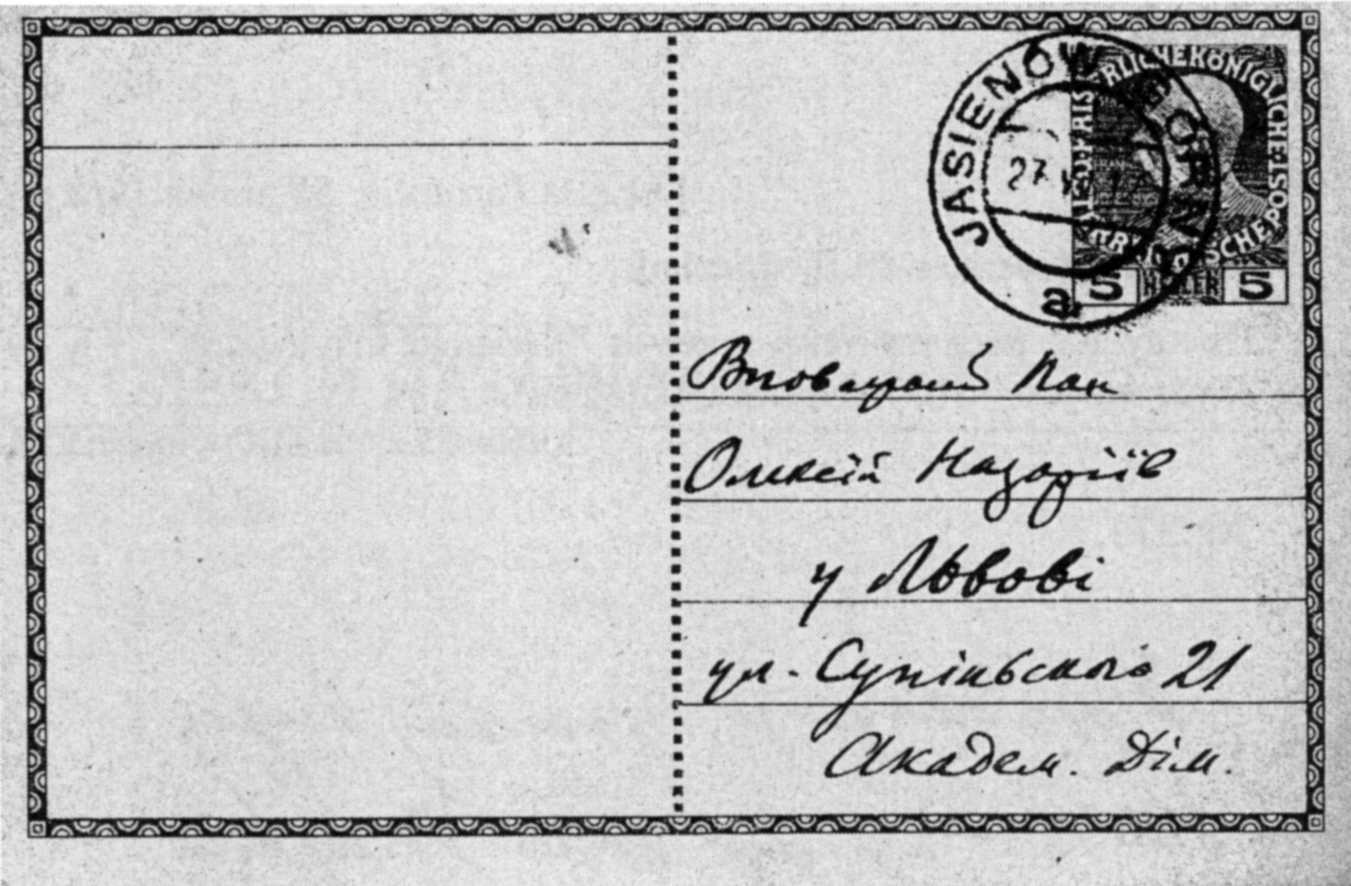 JASIENÓW GÓRNY
27 VI 12
a
KAISERLICHE KÖNIGLICHE
ÖSTERREICHISCHE POST
5 HELLER 5
Пан
Олексій Назаріїв
у Львові
ул. Супіньского 21
Академ. Дім.